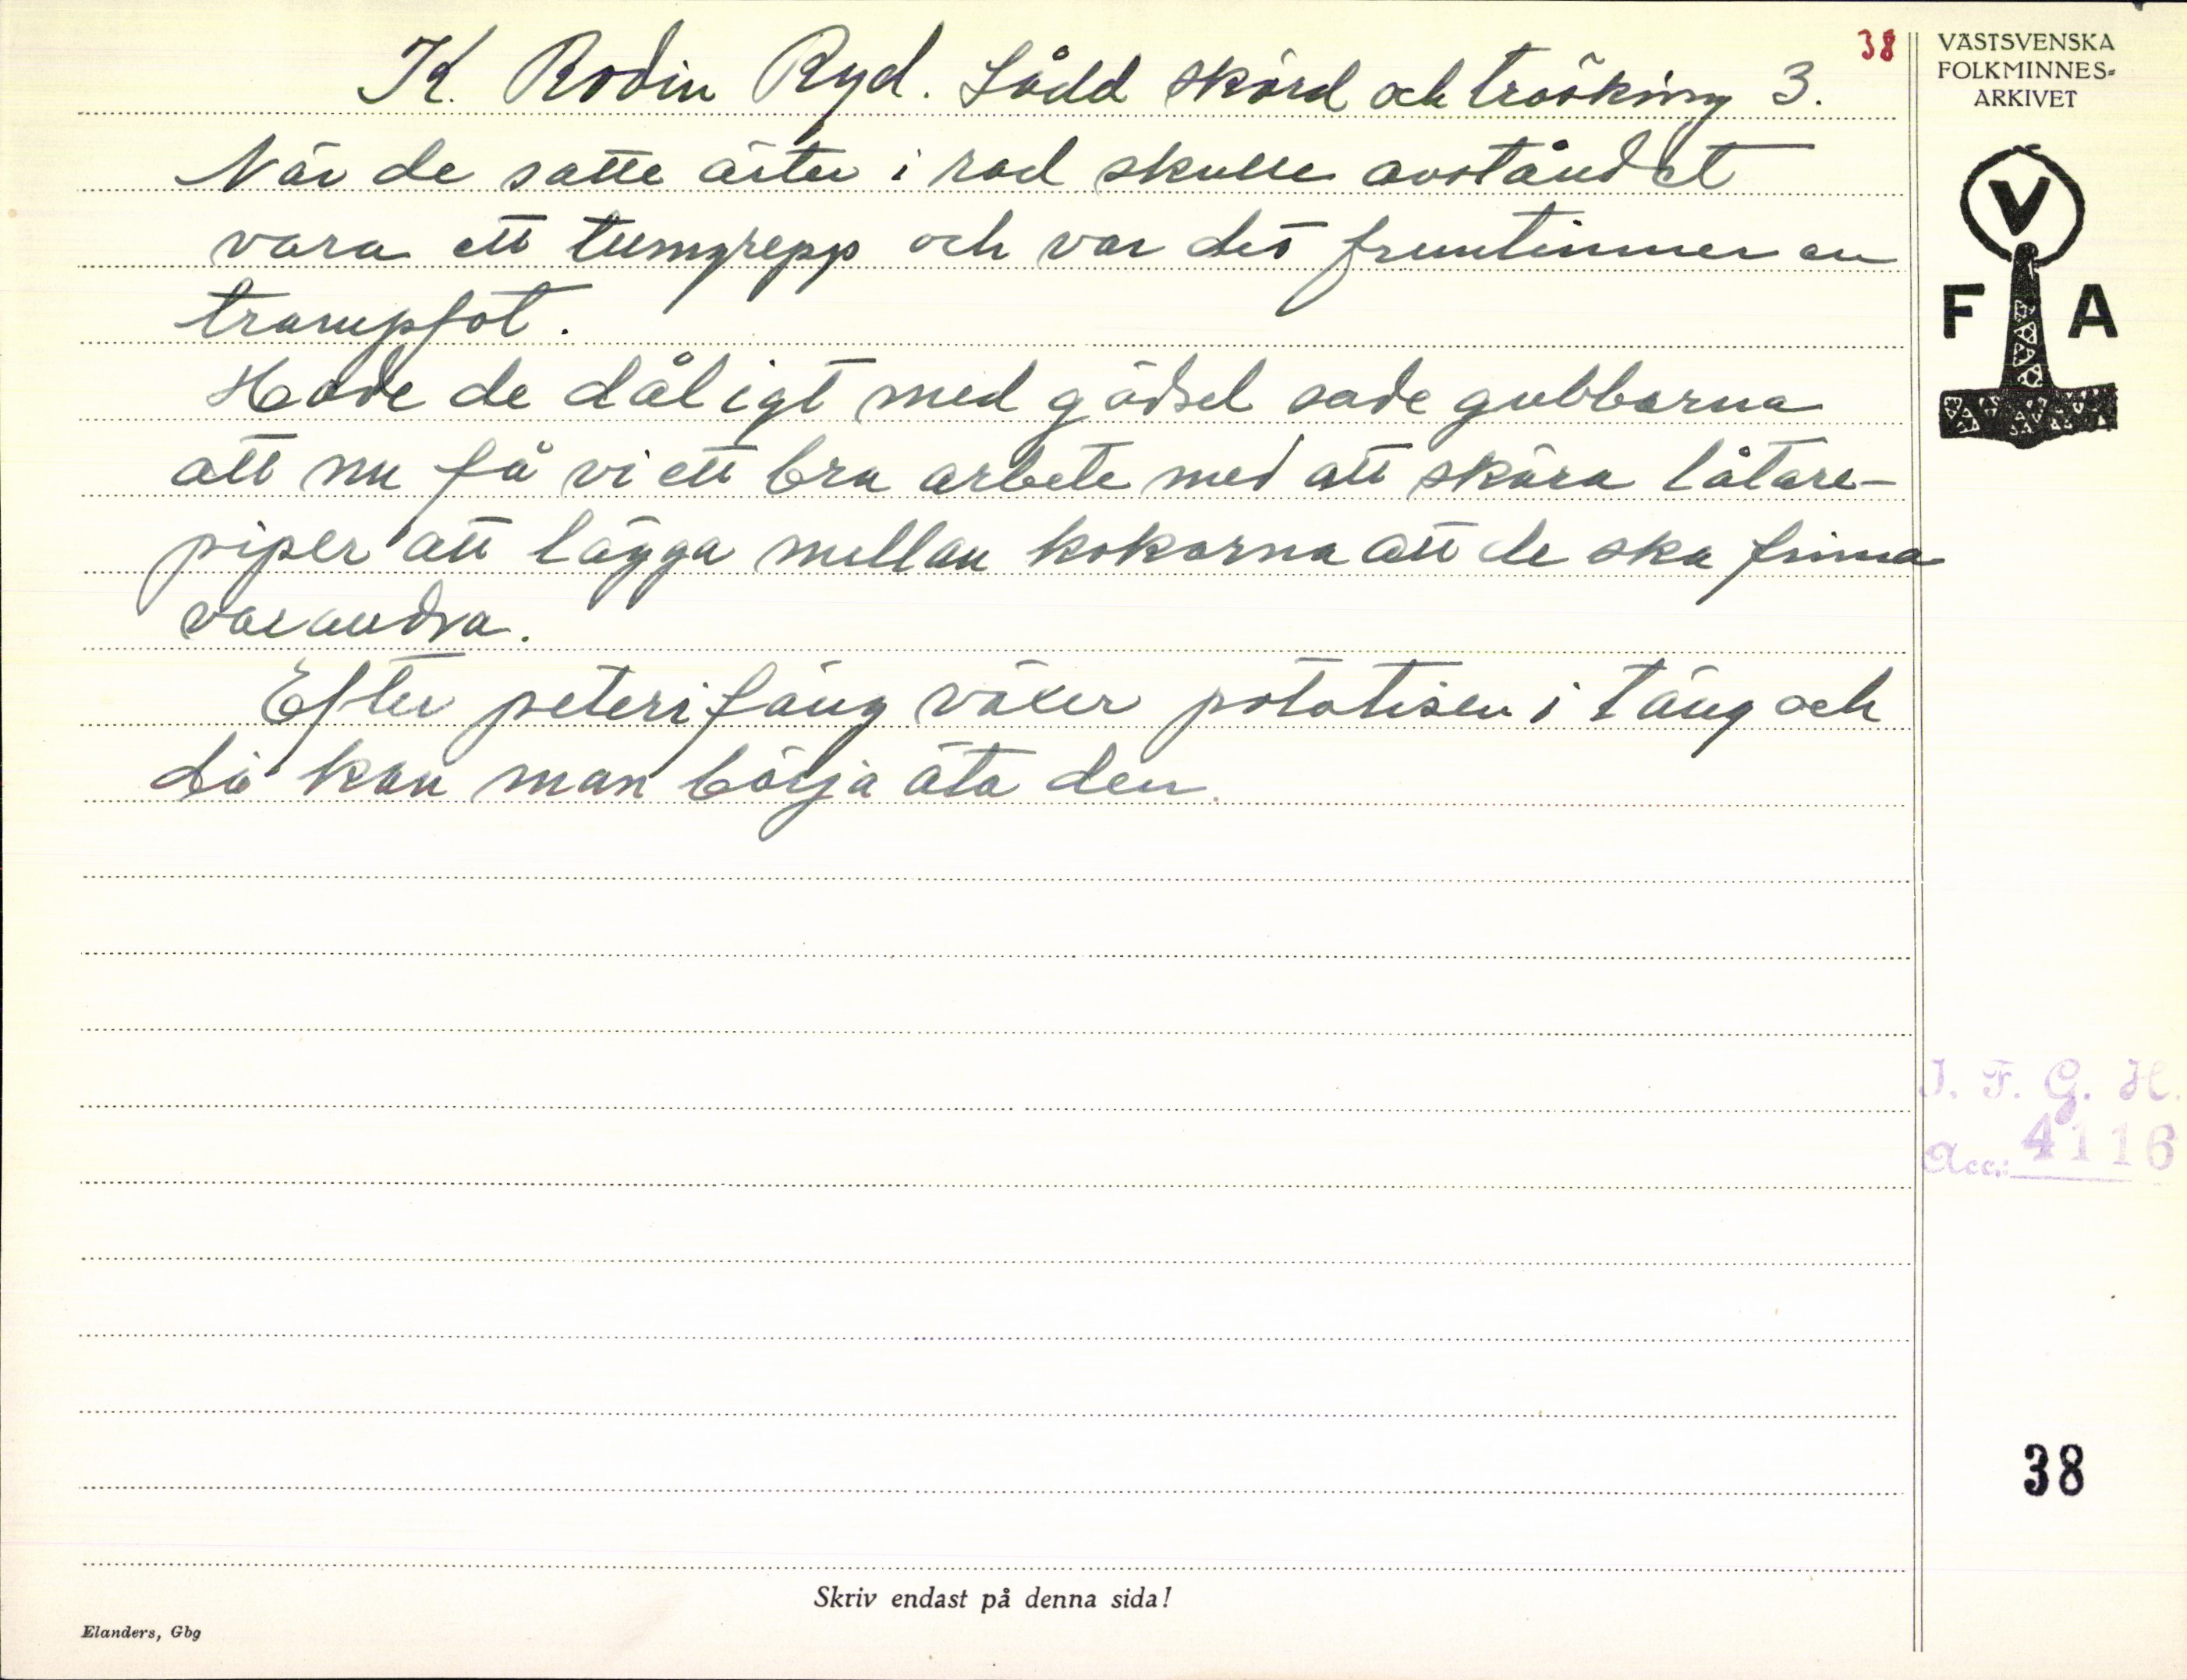 38
K. Rodin Ryd. Sådd skörd och tröskning 3.
När de satte ärter i rad skulle avståndet
vara ett tumgrepp och var det fruntimmer en
trampfot.
Hade de dåligt med gödsel sade gubbarna
att nu få vi ett bra arbete med att skära låtare-
piper att lägga mellan kokorna att de ska finna
varandra.
Efter petersfäng växer potatisen i täng och
då kan man börja äta den.
VÄSTSVENSKA
FOLKMINNES-
ARKIVET
V
F A
I. F. G. H.
Acc.: 4116
38
Skriv endast på denna sida!
Elanders, Gbg